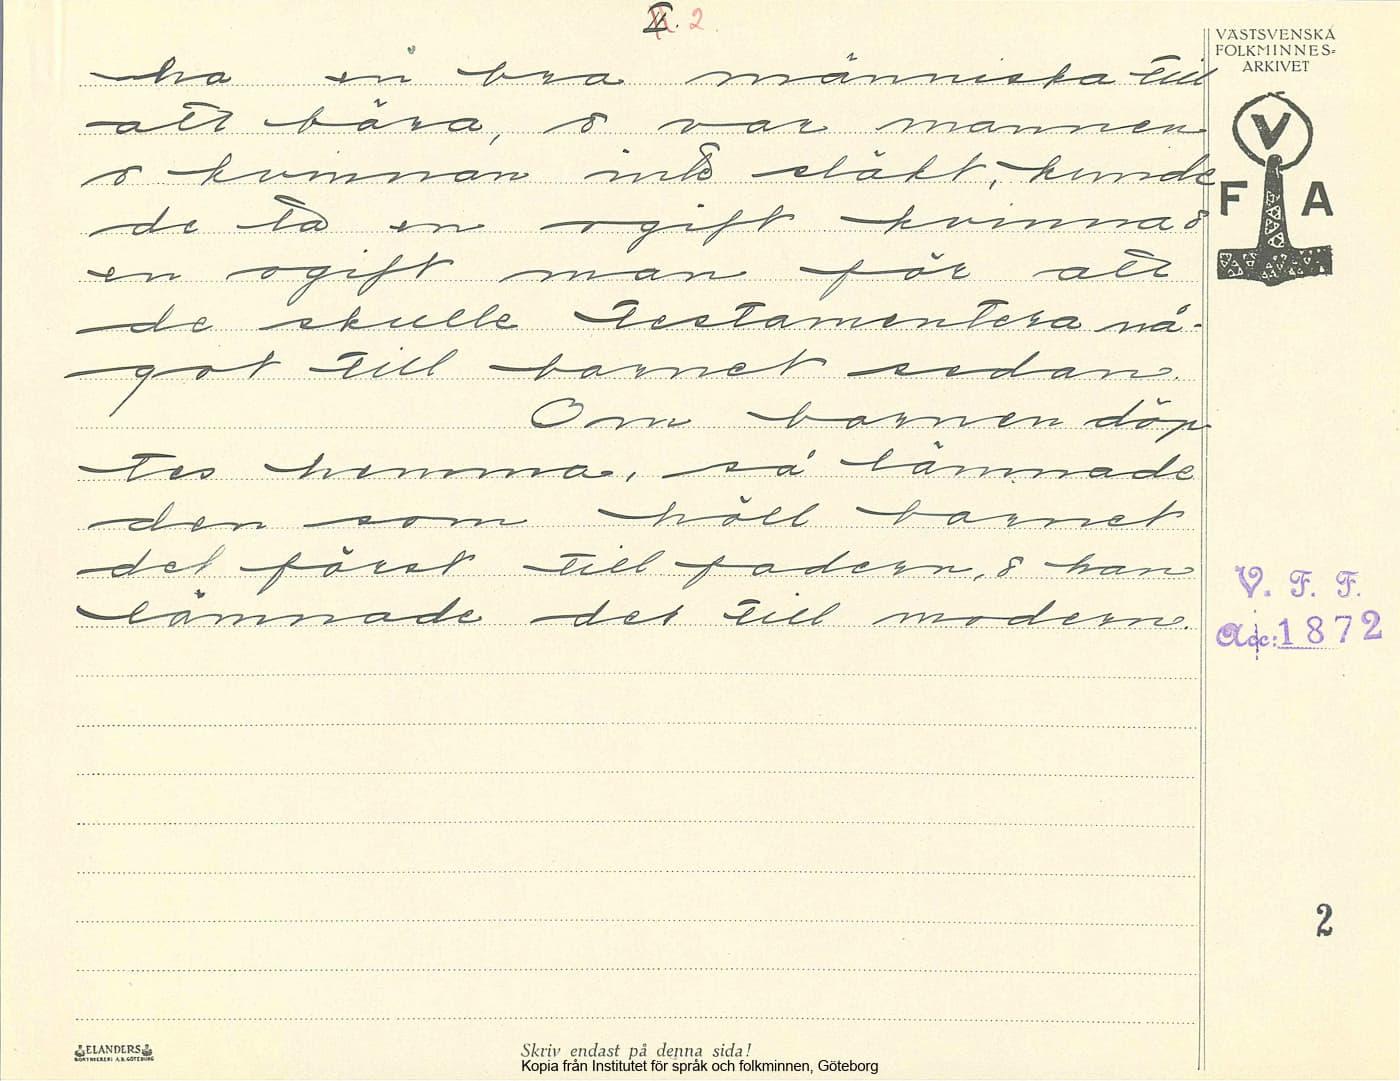 II. 2.
VÄSTSVENSKA
FOLKMINNES-
ARKIVET
V
F A
ha en bra människa till
att bära, o var mannen
o kvinnan inte släkt, kunde
de ta en ogift kvinna o
en ogift man för att
de skulle testamentera nå-
got till barnet sedan.
Om barnen döp
tes hemma, så lämnade
den som höll barnet
det först till fadern, o han
lämnade det till modern.
V. F. F.
Acc: 1872
2
ELANDERS
BOKTRYCKERI A.B. GÖTEBORG
Skriv endast på denna sida!
Kopia från Institutet för språk och folkminnen, Göteborg